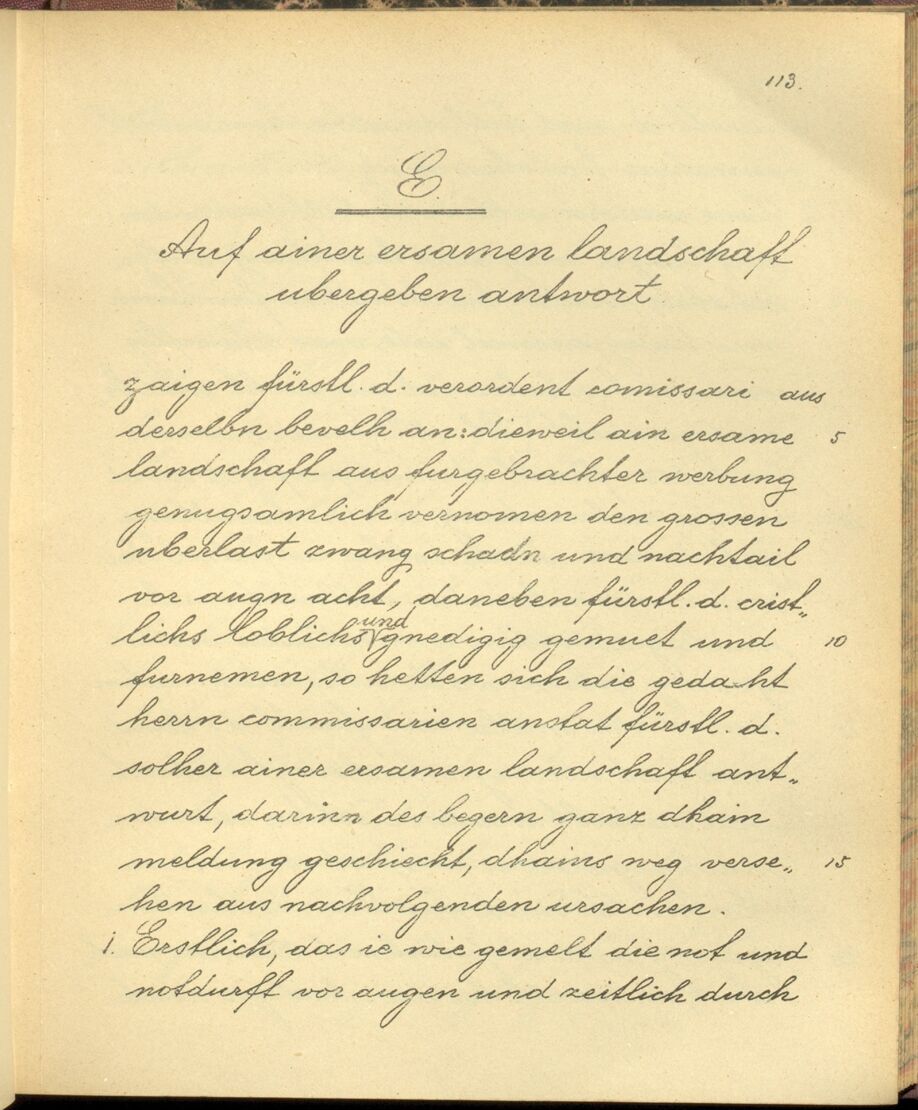 113.
E
Auf ainer ersamen landschaft
ubergeben antwort
zaigen fürstl. d. verordent comissari aus
derselbn bevelh an: dieweil ain ersame 5
landschaft aus furgebrachter werbung
genugsamlich vernomen den grossen
uberlast zwang schadn und nachtail
vor augn acht, daneben fürstl. d. crist„
lichs loblichs und gnedigig gemuet und 10
furnemen, so hetten sich die gedacht
herrn commissarien anstat fürstl. d.
solher ainer ersamen landschaft ant„
wurt, darinn des begern ganz dhain
meldung geschiecht, dhains weg verse„ 15
hen aus nachvolgenden ursachen.
1. Erstlich, das ie wie gemelt die not und
notdurft vor augen und zeitlich durch